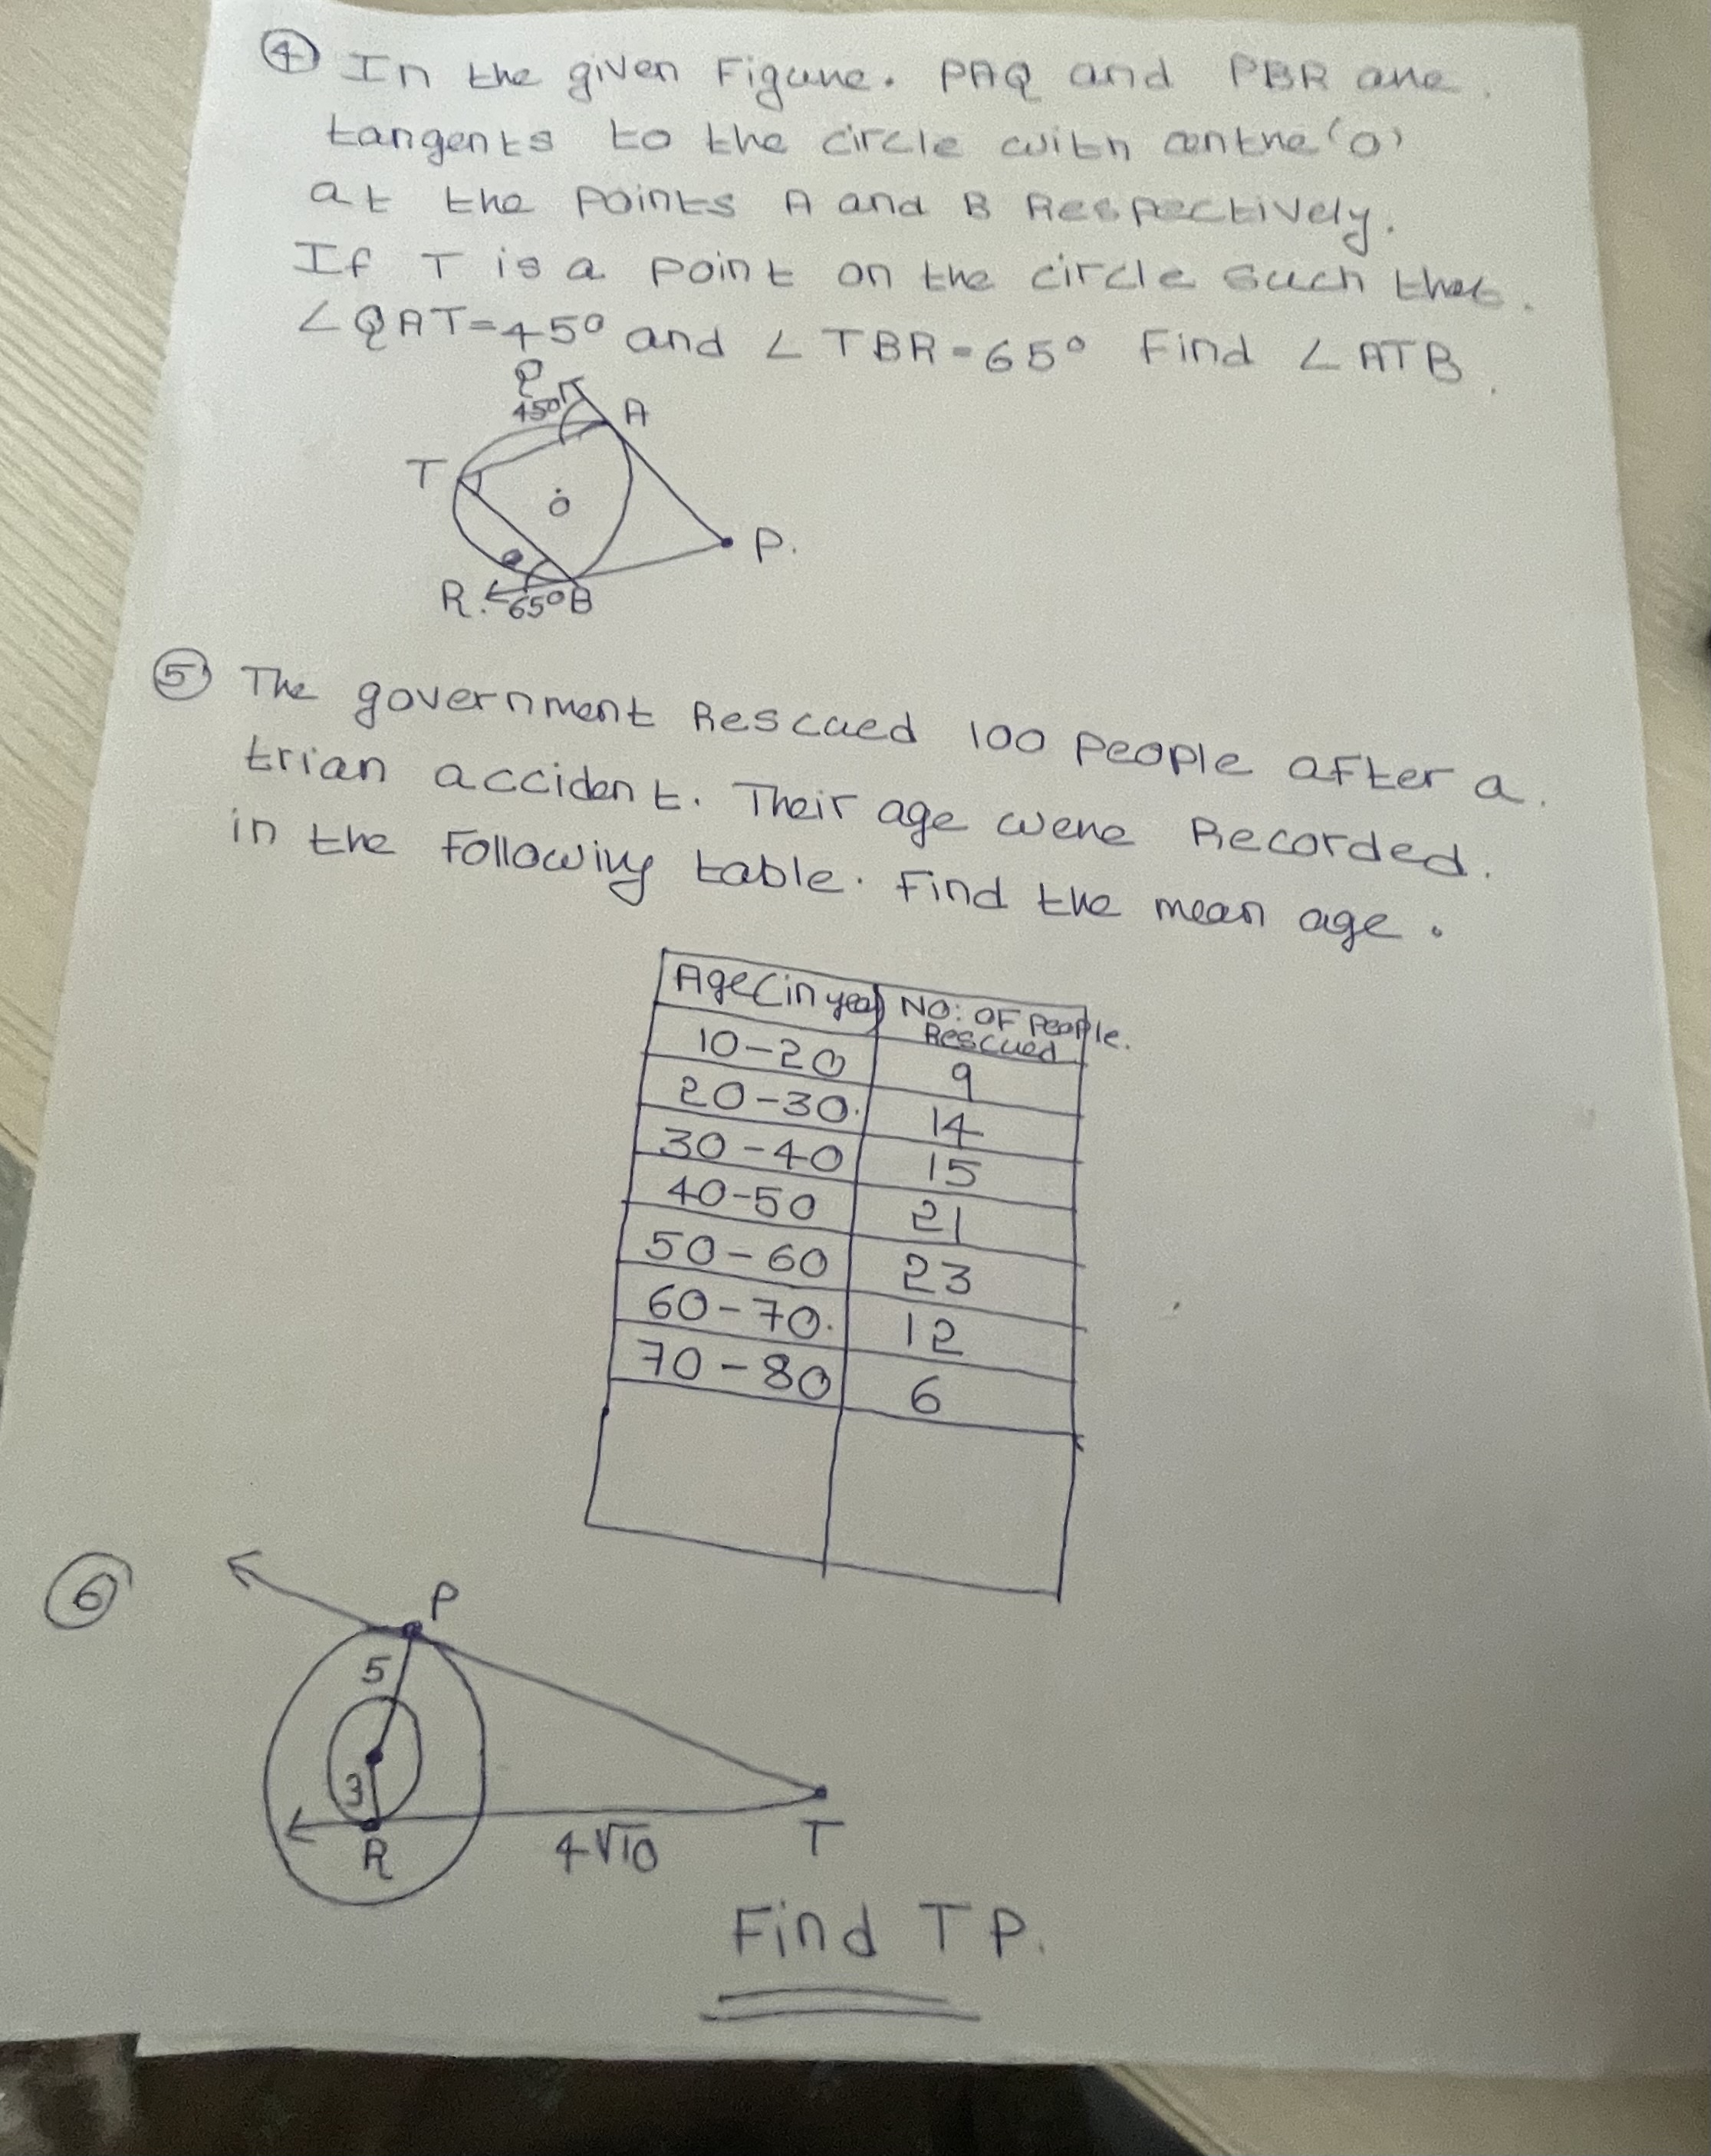 ④ In the given Figure. PAQ and PBR are.
tangents to the circle with centre 'O'
at the points A and B Respectively.
If T is a point on the circle such that.
∠QAT=45° and ∠TBR=65° Find ∠ATB.
Q
45°
A
T
O
P.
R.
65°
B
⑤ The government Rescued 100 people after a.
trian accident. Their age were Recorded.
in the following table. Find the mean age.
Age(in year) NO: OF People.
Rescued
10-20 9
20-30. 14
30-40 15
40-50 21
50-60 23
60-70. 12
70-80 6
⑥
P
5
3
R
4√10
T
Find TP.